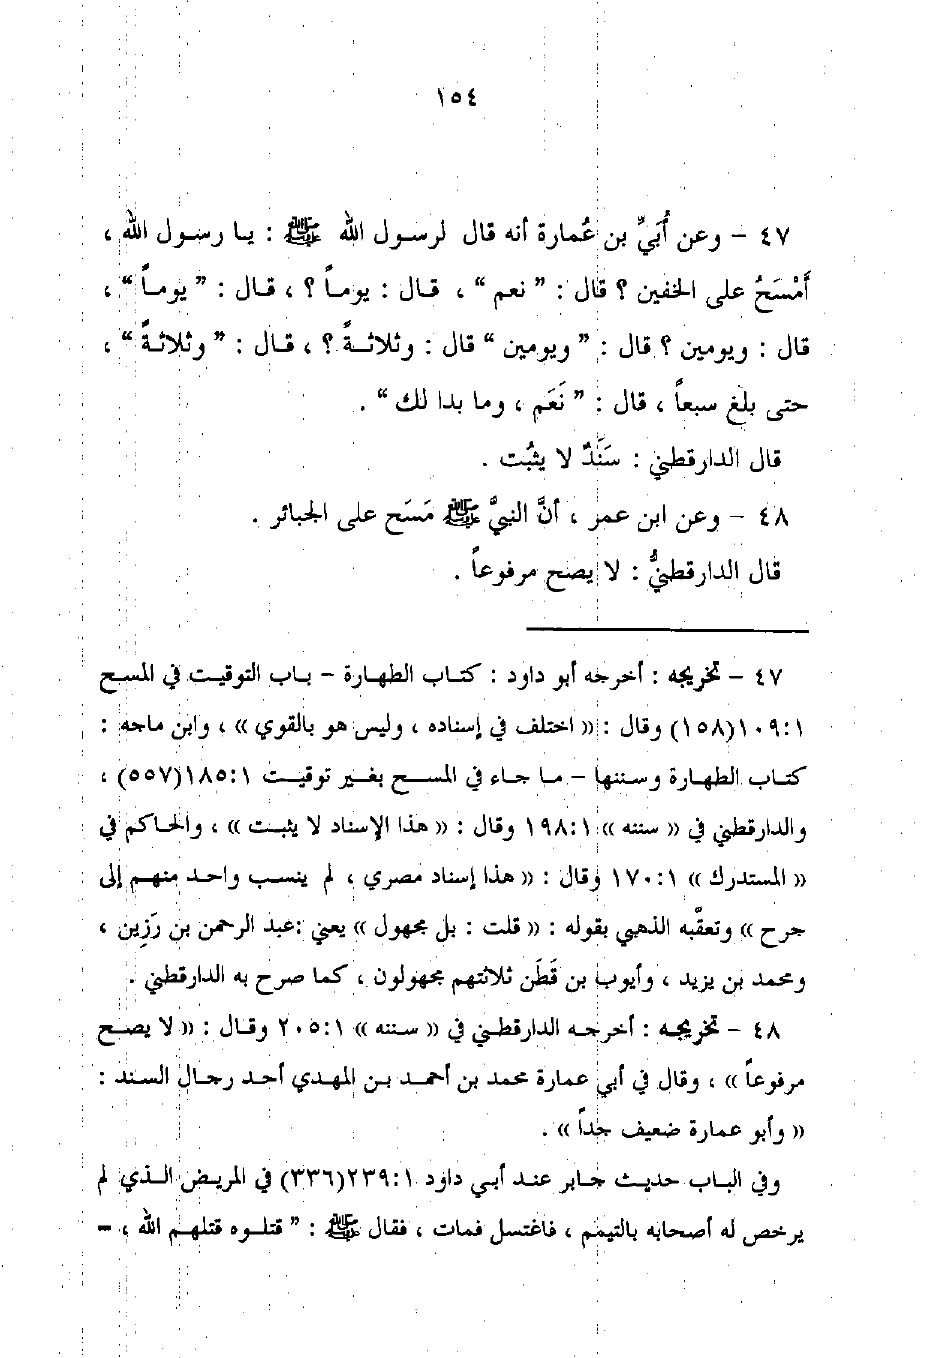 ١٥٤
٤٧ – وعن أُبَيِّ بن عُمارة أنه قال لرسول الله ﷺ : يا رسول الله ،
أَمْسَحُ على الخفين ؟ قال : ” نعم “ ، قال : يوماً ؟ ، قال : ” يوماً “ ،
قال : ويومين ؟ قال : ” ويومين “ قال : وثلاثةً ؟ ، قال : ” وثلاثةً “ ،
حتى بلغ سبعاً ، قال : ” نَعَم ، وما بدا لك “ .
قال الدارقطني : سَنَدٌ لا يثبُت .
٤٨ – وعن ابن عمر ، أنَّ النبيَّ ﷺ مَسَح على الجبائر .
قال الدارقطنيُّ : لا يصح مرفوعاً .
٤٧ – تخريجه : أخرجه أبو داود : كتاب الطهارة – باب التوقيت في المسح
١:١٠٩(١٥٨) وقال : « اختلف في إسناده ، وليس هو بالقوي » ، وابن ماجه :
كتاب الطهارة وسننها – ما جاء في المسح بغير توقيت ١:١٨٥(٥٥٧) ،
والدارقطني في « سننه » ١:١٩٨ وقال : « هذا الإسناد لا يثبت » ، والحاكم في
« المستدرك » ١:١٧٠ وقال : « هذا إسناد مصري ، لم ينسب واحد منهم إلى
جرح » وتعقَّبه الذهبي بقوله : « قلت : بل مجهول » يعني :عبد الرحمن بن رَزِين ،
ومحمد بن يزيد ، وأيوب بن قَطَن ثلاثتهم مجهولون ، كما صرح به الدارقطني .
٤٨ – تخريجه : أخرجه الدارقطني في « سننه » ١:٢٠٥ وقال : « لا يصح
مرفوعاً » ، وقال في أبي عمارة محمد بن أحمد بن المهدي أحد رجال السند :
« وأبو عمارة ضعيف جداً » .
وفي الباب حديث جابر عند أبي داود ١:٢٣٩(٣٣٦) في المريض الذي لم
يرخص له أصحابه بالتيمم ، فاغتسل فمات ، فقال ﷺ : ” قتلوه قتلهم الله ، =